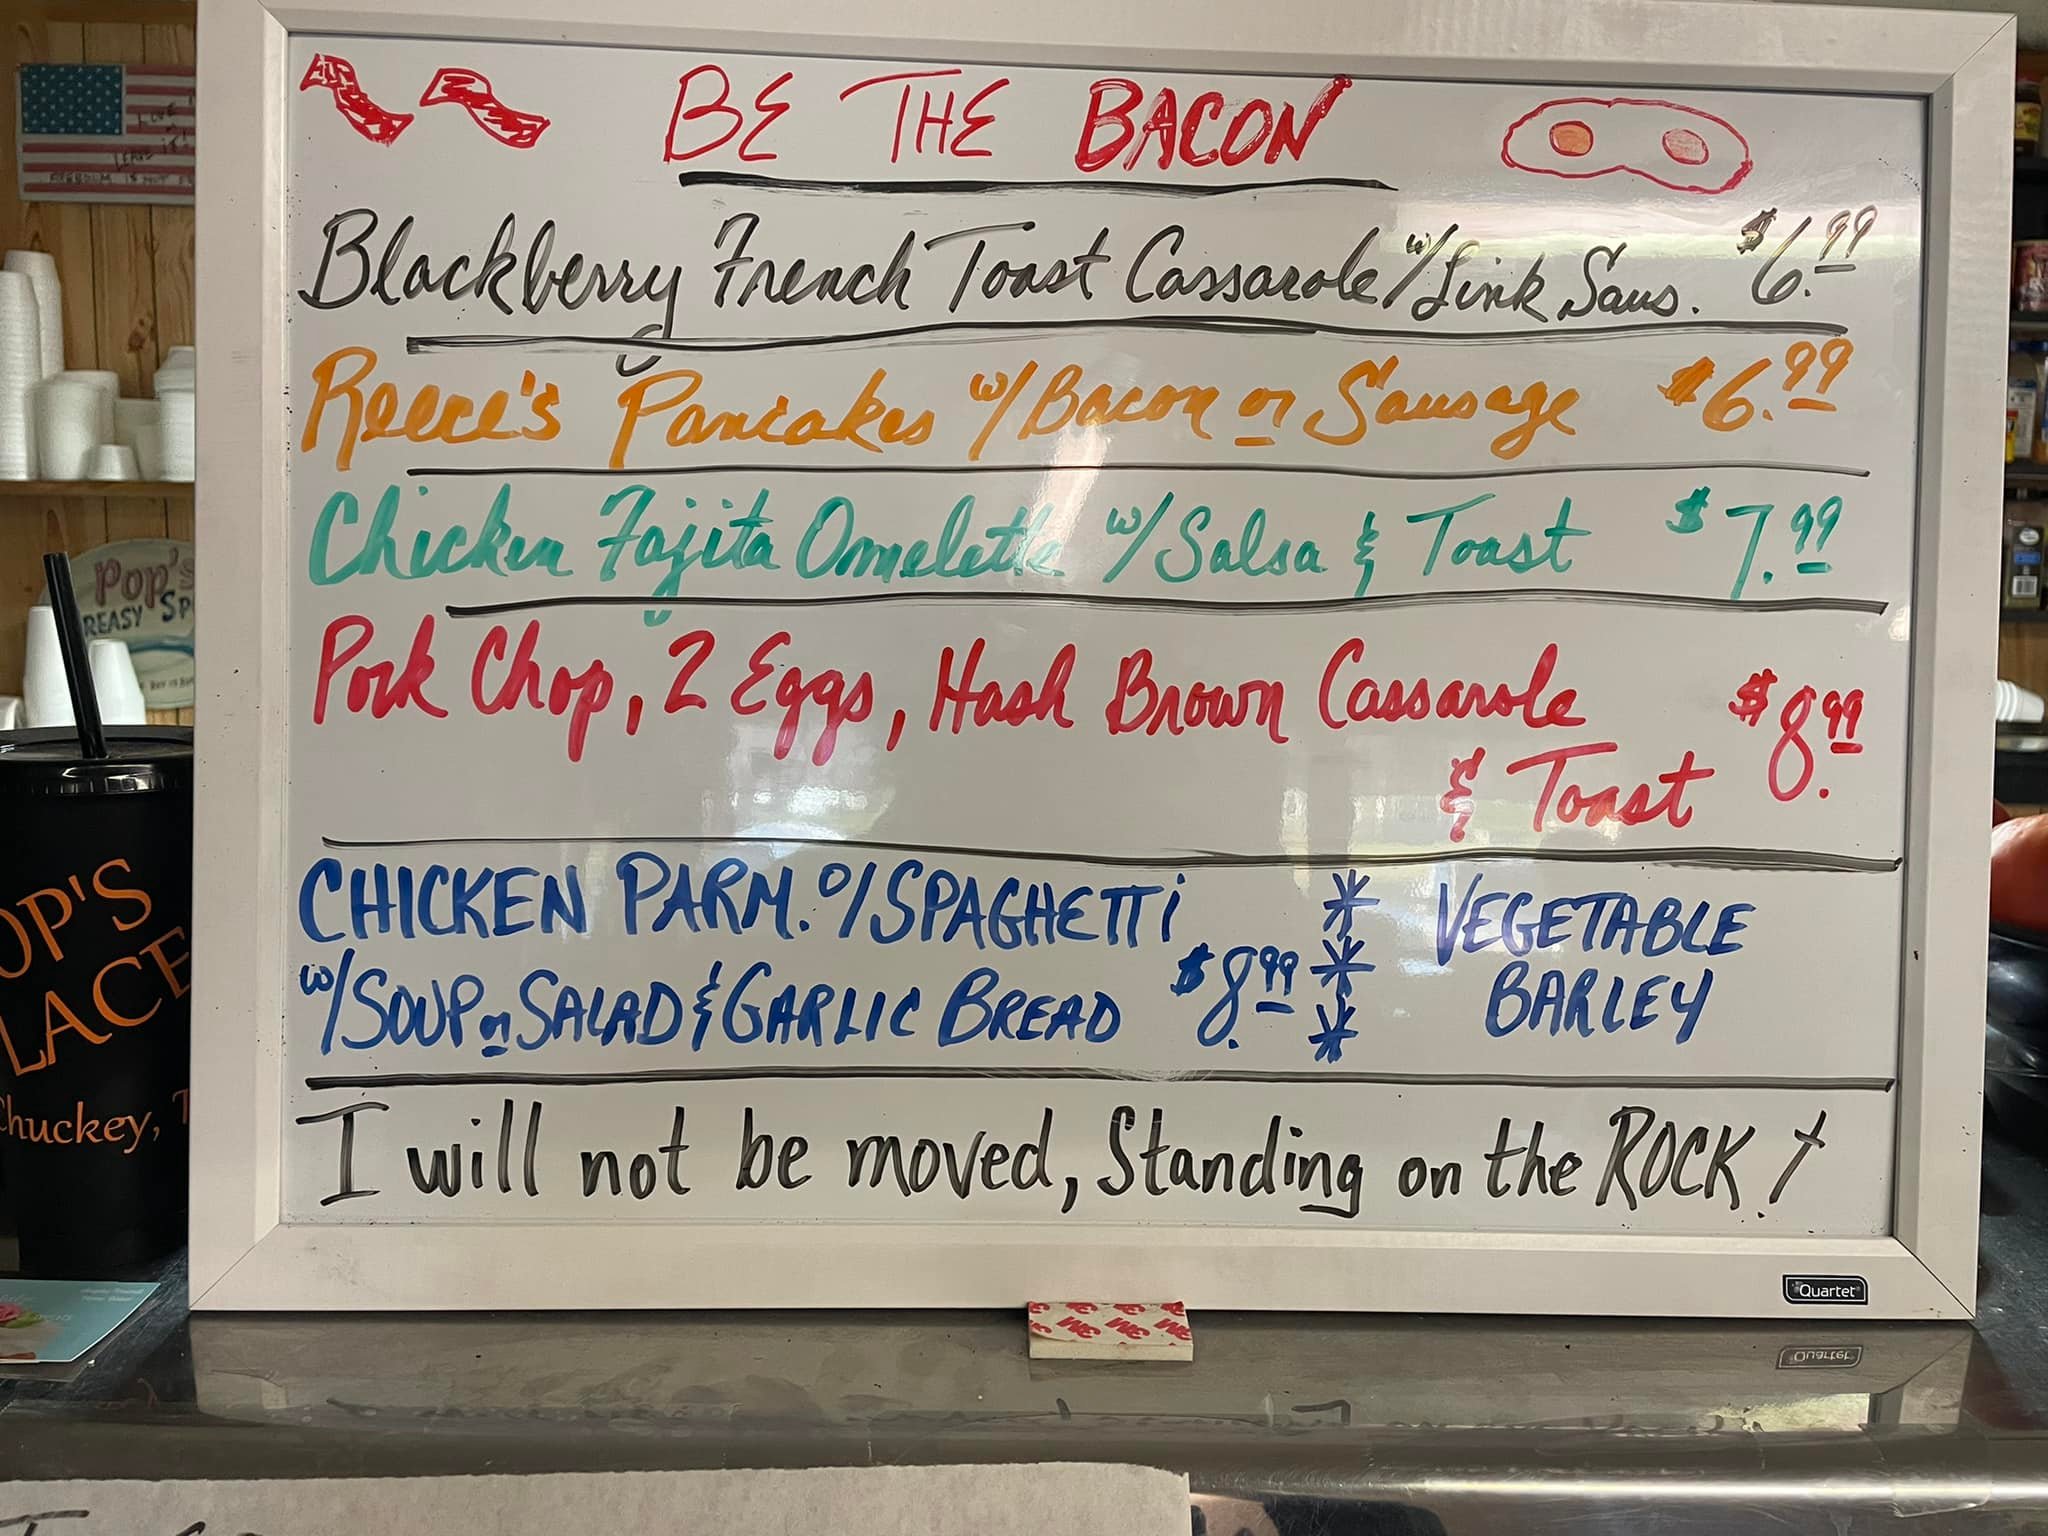 BE THE BACON
Blackberry French Toast Cassarole w/Link Saus. $6.99
Reece's Pancakes w/Bacon or Sausage $6.99
Chicken Fajita Omelette w/Salsa & Toast $7.99
Pork Chop, 2 Eggs, Hash Brown Cassarole
& Toast $8.99
CHICKEN PARM. o/SPAGHETTi
w/SOUP or SALAD & GARLIC BREAD $8.99
* * *
VEGETABLE
BARLEY
I will not be moved, Standing on the ROCK!
Quartet
3M 3M 3M
LOVE
LEAVE IT!
FREEDOM IS NOT
POP'S
REASY SP
OP'S
LACE
Chuckey, T